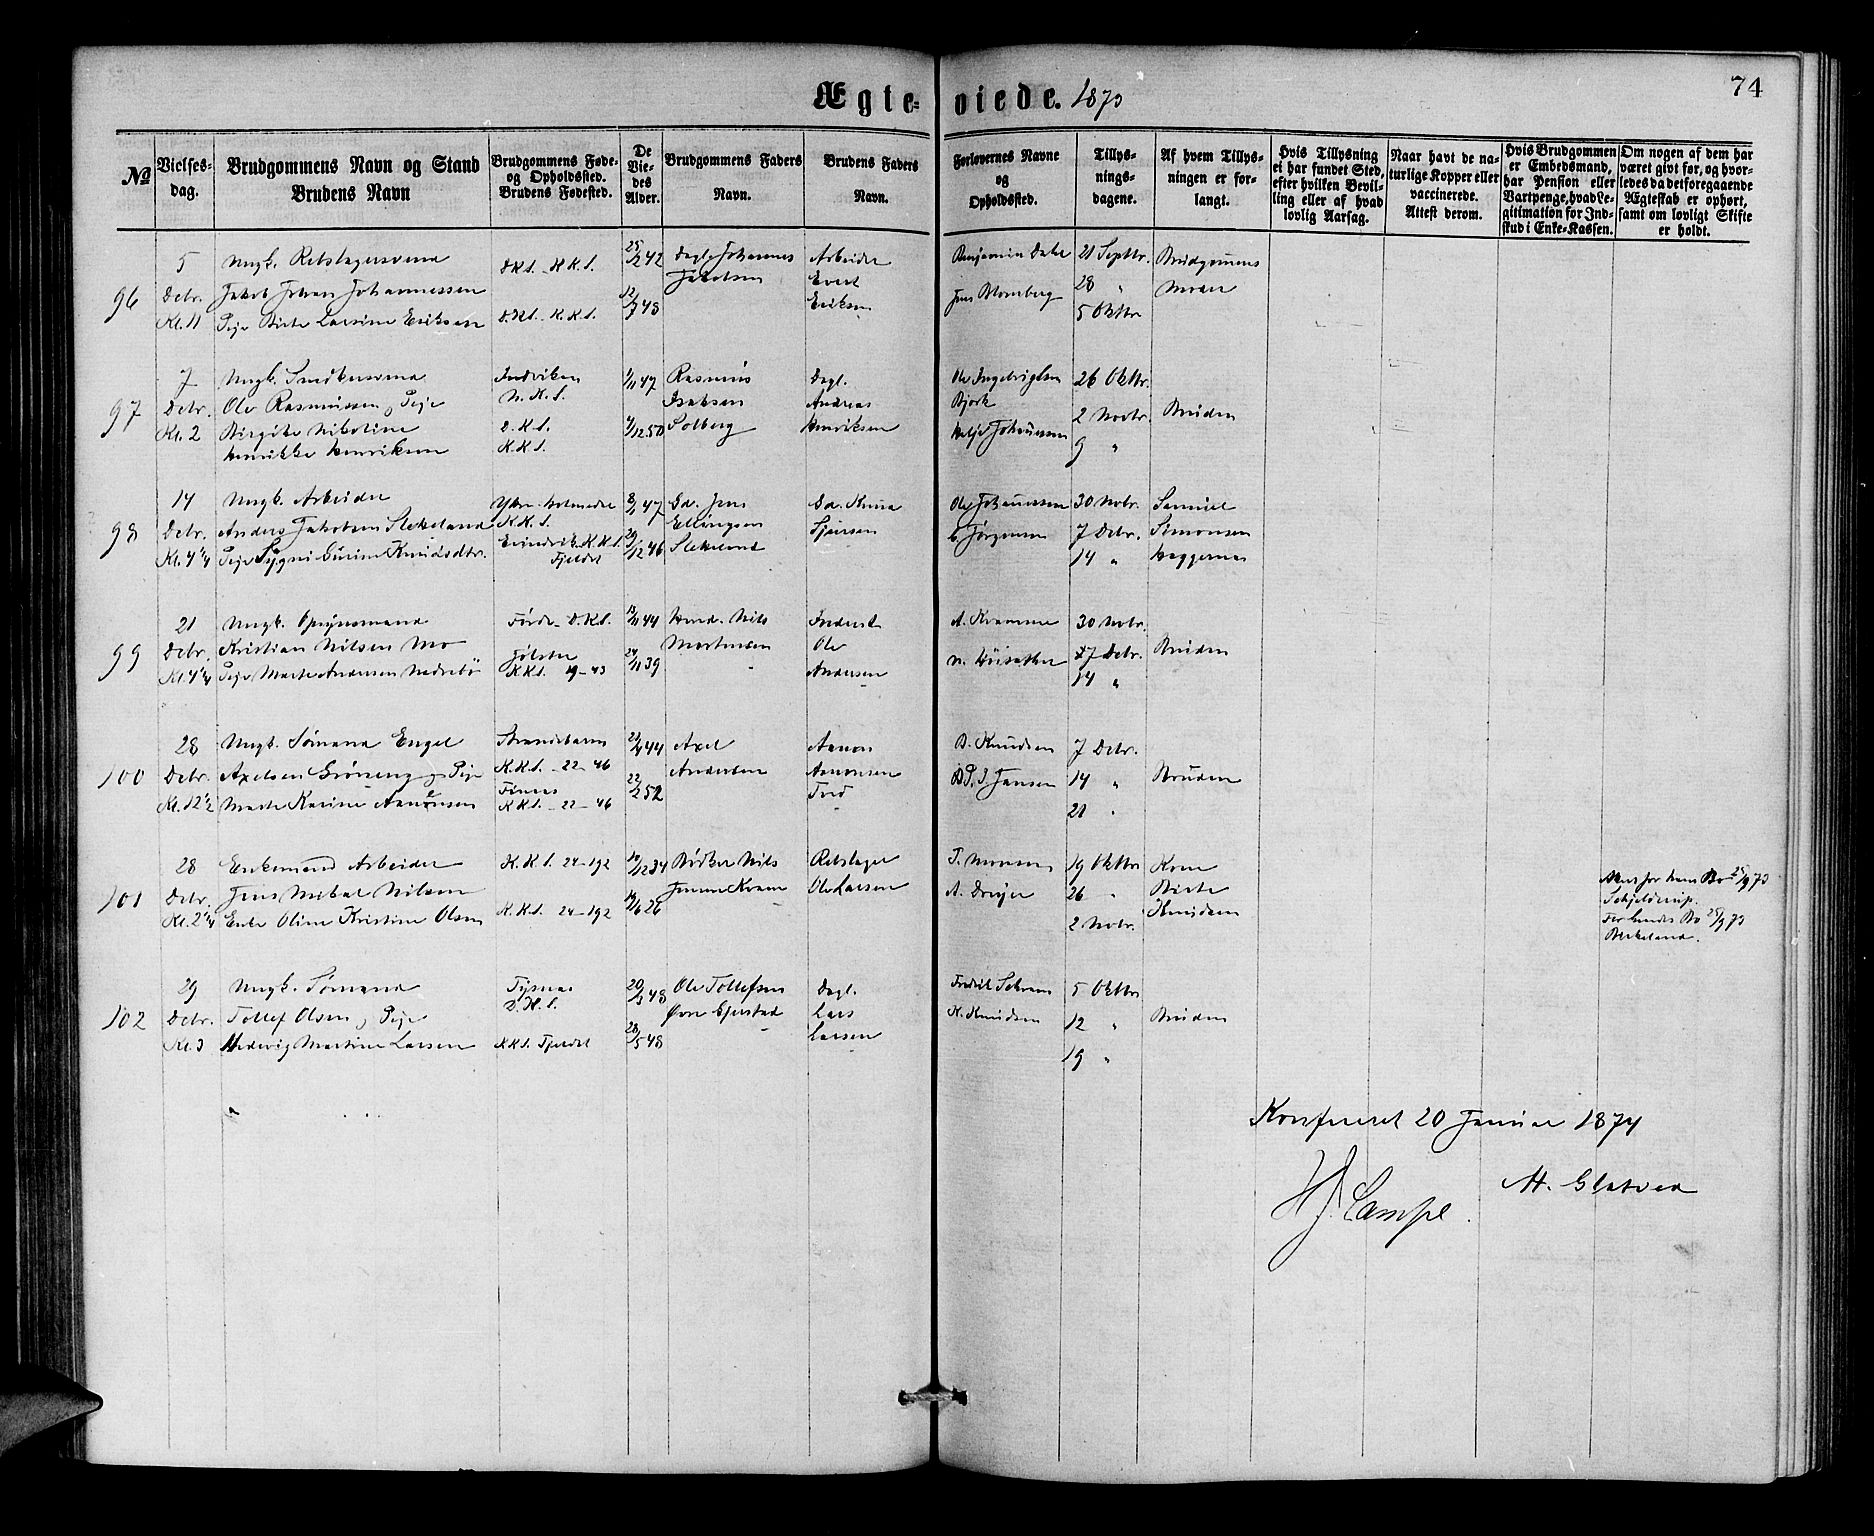 Ægteviede. 1873
74
No
Vielsesdag.
Brudgommens Navn og Stand
Brudens Navn
Brudgommens Føde-
og Opholdssted.
Brudens Fødested.
De
Vie-
des
Alder.
Brudgommens Faders
Navn.
Brudens Faders
Navn.
Forlovernes Navne
og
Opholdssted.
Tillys-
nings-
dagene.
Af hvem Tillys-
ningen er for-
langt.
Hvis Tillysning
ei har fundet Sted,
efter hvilken Bevil-
ling eller af hvad
lovlig Aarsag.
Naar havt de na-
turlige Kopper eller
vaccinerede.
Attest derom.
Hvis Brudgommen
er Embedsmand,
har Pension eller
Vartpenge, hvad Le-
gitimation for Ind-
skud i Enke-Kassen.
Om nogen af dem har
været givt før, og hvor-
ledes da det foregaaende
Ægteskab er ophørt,
samt om lovligt Skifte
er holdt.
96
5 Decbr. Kl. 11
Ungk. Rebslagersvend
Jakob Johan Johannessen
Pige Birte Larsine Eriksen
D.K.S. K.K.S.
D.K.S. K.K.S.
25/2 42
12/7 48
Dagl. Johannes
Jakobsen
Arbeider
Evert
Eriksen
Benjamin Dahl
Jens Blomberg
21 Septbr.
28 "
5 Oktbr.
Brudgommens
Moder
97
7 Decbr. Kl. 2
Ungk. Snedkersvend
Ole Rasmussen, Pige
Birgitte Nikoline
Henrikke Henriksen
Indviken
N.K.S.
D.K.S.
K.K.S.
Rasmus
Isaksen
Solberg
Dagl.
Andreas
Henriksen
Ole Ingebrigtsen
Bjork
Helje Johannesen
26 Oktbr.
2 Novbr.
9 "
Bruden
98
14 Decbr. Kl. 4 1/4
Ungk. Arbeider
Anders Jakobsen Slekeland
Pige Sygni Gurine Knudsdtr.
K.K.S.
Evindvik. K.K.S.
Fjeldet
8/1 47
29/12 46
Gd. Jens
Ellingsen
Slekeland
Gd. Knud
Sjursen
Ole Johannessen
C. Jörgensen
30 Novbr.
7 Decbr.
14 "
Samuel
Simonsen
Haggernes
99
21 Decbr. Kl. 4 1/4
Ungk. Opsynsmand
Kristian Nilsen Mo
Pige Marte Andersen Nedrebö
Förde D.K.S.
Jölster
K.K.S. 19-43
13/11 44
24/11 39
Husd. Nils
Martinsen
Inderst
Ole
Andersen
A. Kramme
30 Novbr.
7 Decbr.
14 "
Bruden
100
28 Decbr. Kl. 12 1/2
Ungk. Sömand Engel
Axelsen Gröneng og Pige
Marte Karine Aanonsen
Strandebarm
K.K.S. 22-46
K.K.S. 22-46
22/2 52
Axel
Andersen
Aanon
Aanonsen
Tved
B. Knudsen
J. Jansen
7 Decbr.
14 "
21 "
Bruden
101
28 Decbr. Kl. 2 1/4
Enkemand Arbeider
Jens Mikal Nilsen
Enke Oline Kristine Olsen
K.K.S. 24-192
K.K.S. 24-192
Bödker Nils
Jensen Kvam
Rebslager
Ole Larsen
T. Monsen
A. Dreyer
19 Oktbr.
26 "
2 Novbr.
Kone
Birte
Knudsen
Attest for hans Bo 25/9 73
Schjelderup.
For hendes Bo 25/9 73
Berkeland.
102
29 Decbr. Kl. 3
Ungk. Sömand
Tollef Olsen, Pige
Hedevig Martine Larsen
Tysnæs
D.K.S.
K.K.S. Fjeldet
20/3 48
28/5 48
Ole Tollefsen
Övre Gjerstad
Dagl.
Lars
Larsen
Fredrik Schram
K. Knudsen
5 Oktbr.
12 "
19 "
Bruden
Konfereret 20 Januar 1874
H J. Lampe.
M. Glatved